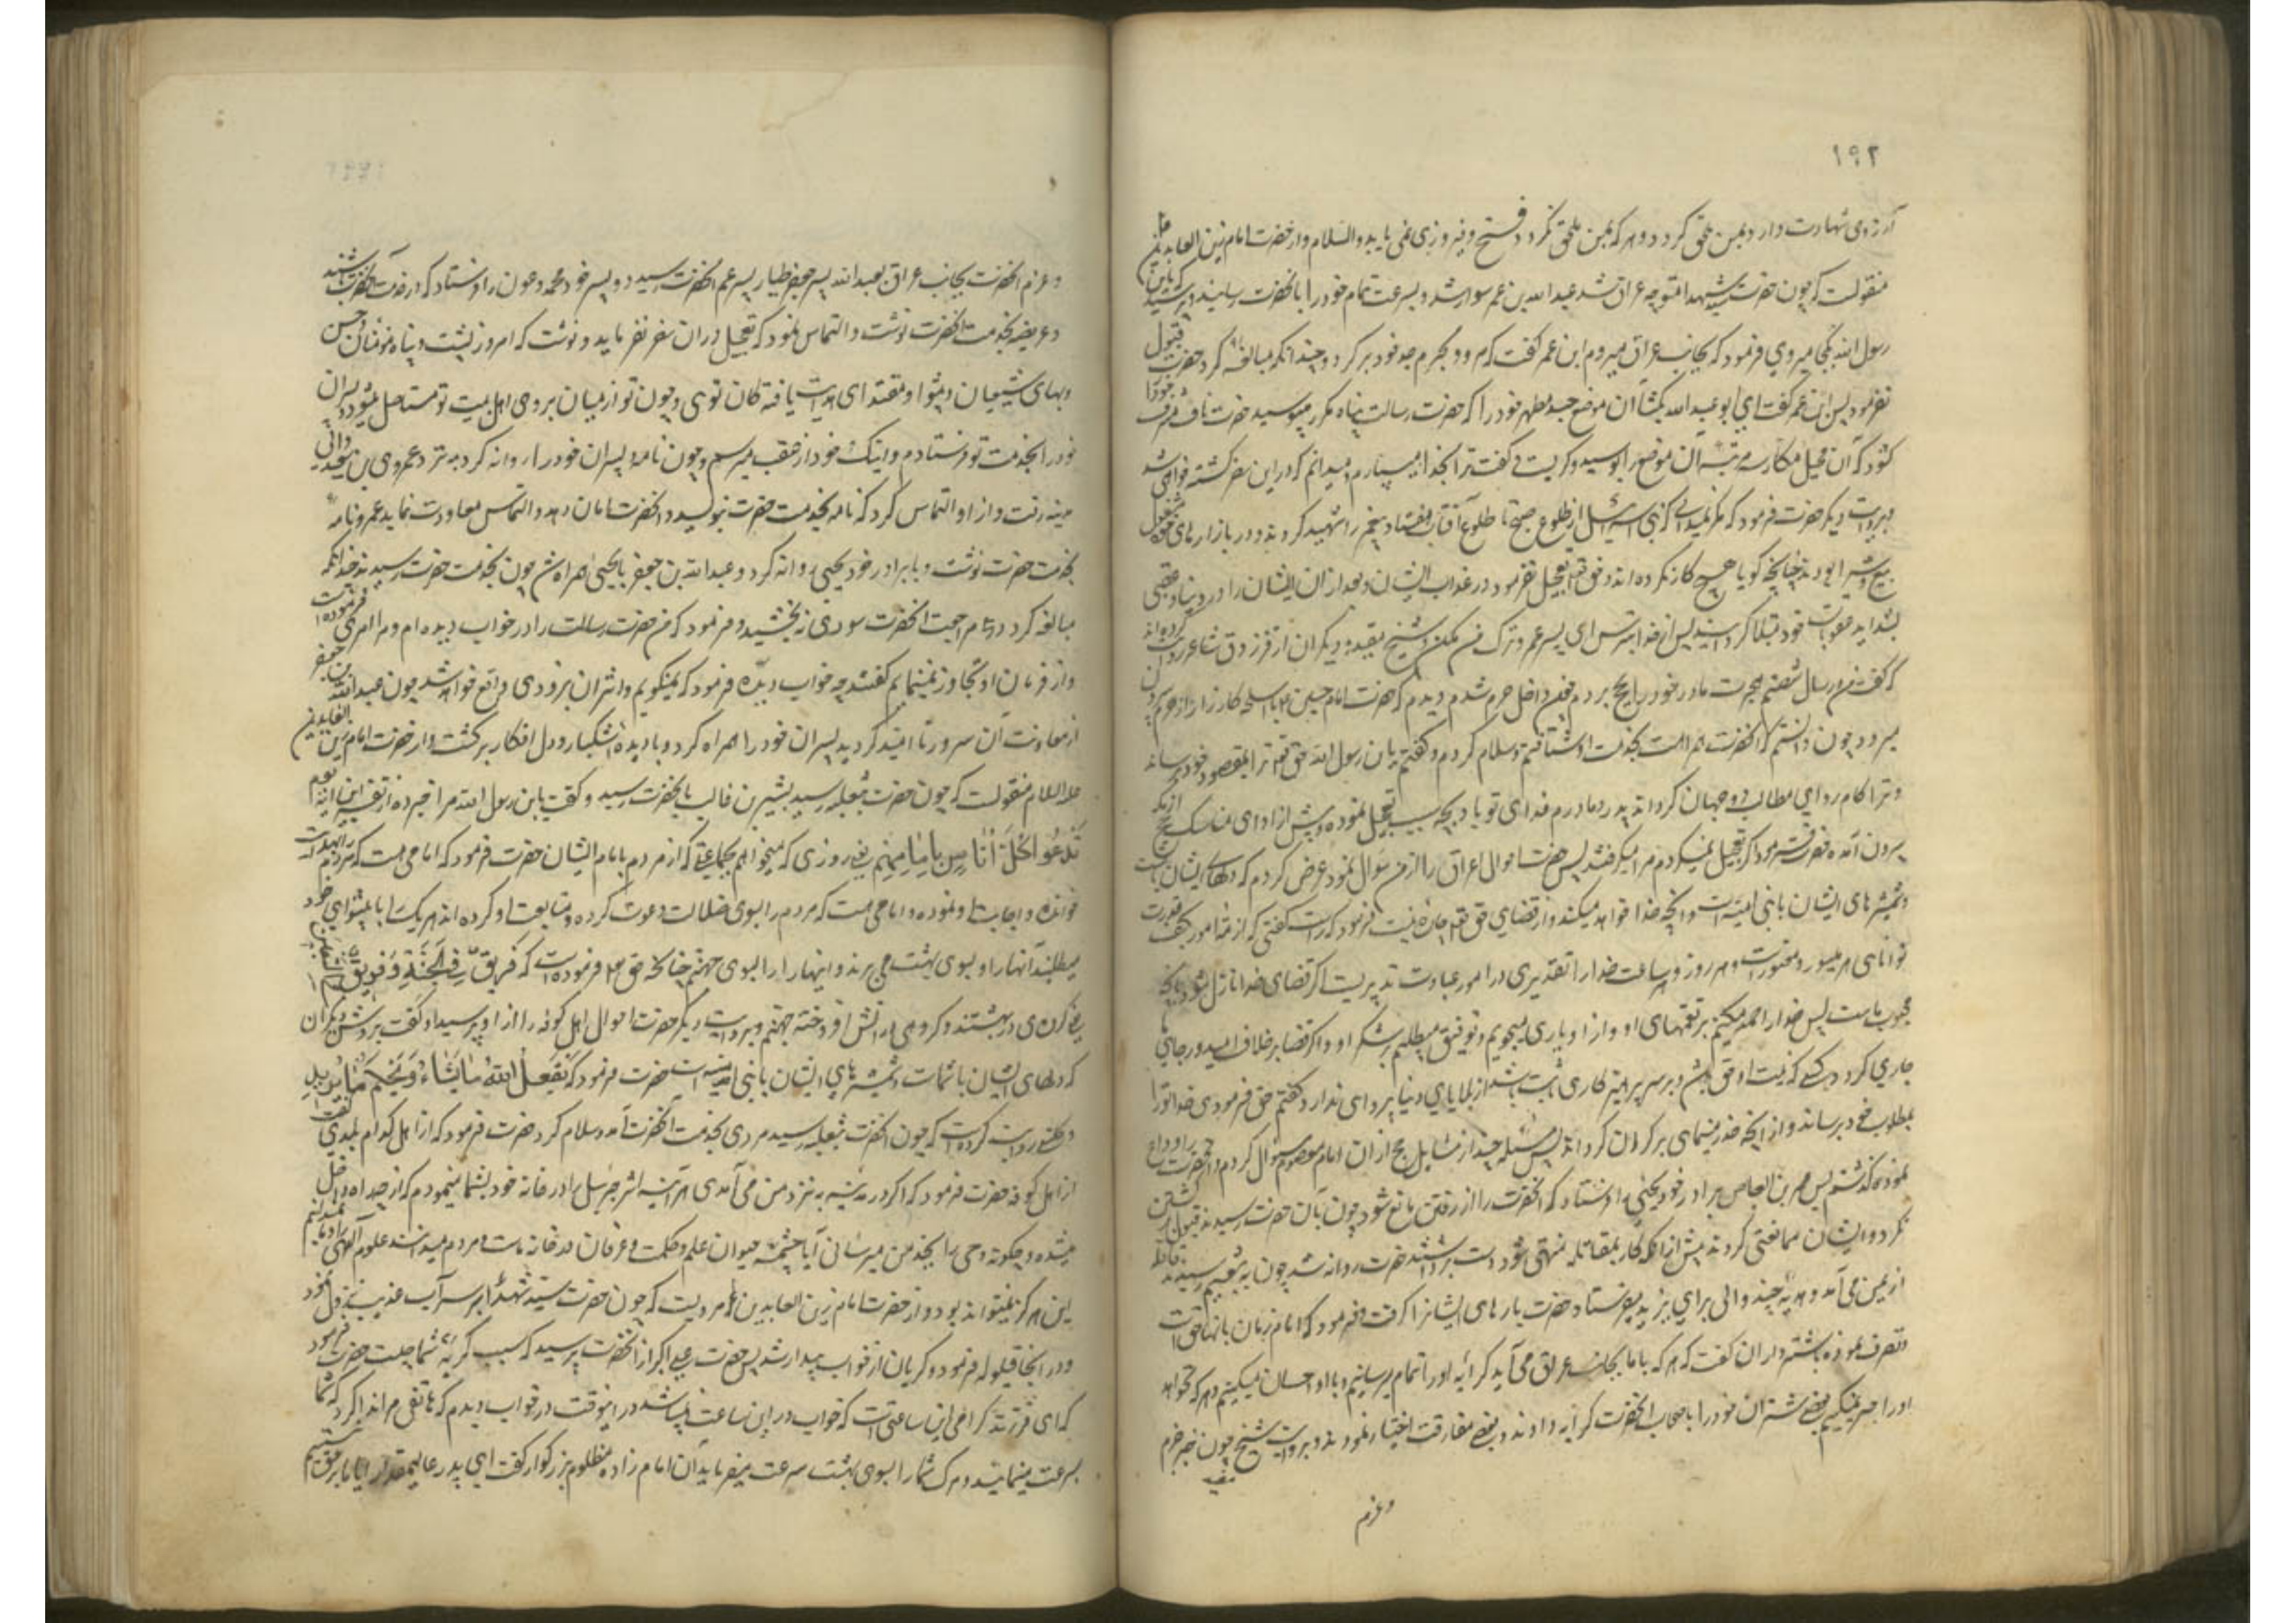 ۱۹۲
آرزوی شهادت دارد بمن ملحق گردد و هر که بمن ملحق نگردد فتح و فیروزی نمی یابد والسلام و از حضرت امام زین العابدین
منقولست که چون حضرت سید شهدا متوجه عراق شد عبدالله بن عمر سوار شد و بسرعت تمام خود را بآنحضرت رسانید و پرسید که یابن
رسول الله بکجا میروی فرمود که بجانب عراق میروم ابن عمر گفت که مرو و بحرم جد خود برگرد و چندانکه مبالغه کرد حضرت قبول
نفرمود پس ابن عمر گفت ای ابو عبدالله بگشا آن موضع جسد مطهر خود را که حضرت رسالت پناه مکرر میبوسید حضرت ناف مشرف خود را
گشود که آن سه مرتبه آن موضع را بوسید و گریست و گفت ترا بخدا میسپارم و میدانم که در این سفر کشته خواهی شد
بروایت دیگر حضرت فرمود که مگر نمیدانی که بنی اسرائیل از طلوع صبح تا طلوع آفتاب هفتاد پیغمبر را شهید کردند و در بازارهای خود مشغول
بیع و شرا بودند چنانچه گویا هیچ کار نکرده اند و حق تعالی تعجیل نفرمود در عذاب ایشان و بعد از آن ایشان را در دنیا و عقبی
بشداید عقوبات خود مبتلا گردانید پس از خدا بترس ای پسر عمر و ترک من مکن و شیخ مفید و دیگران از فرزدق شاعر روایت کرده اند
که گفت من در سال شصتم هجرت مادر خود را بحج بردم چون داخل حرم شدم دیدم که حضرت امام حسین با اسلحه کارزار از حرم بیرون
میرود چون دانستم که آنحضرت است بخدمت او شتافتم و سلام کردم و گفتم یابن رسول الله حق تعالی ترا بمقصود خود برساند
و ترا کامروای مطالب دو جهان گرداند پدر و مادرم فدای تو باد بچه سبب تعجیل نموده و پیش از ادای مناسک حج از مکه
بیرون آمده حضرت فرمود اگر تعجیل نمیکردم مرا میگرفتند پس حضرت احوال عراق را از من سؤال نمود عرض کردم که دلهای ایشان با تست
و شمشیرهای ایشان با بنی امیه است و آنچه خدا خواهد میکند و از قضای حق تعالی چاره نیست فرمود که راست گفتی
خدا را تقدیری در امور عباد است اگر قضای خدا نازل شود بآنچه
محبوب ماست پس خدا را حمد میکنیم بر نعمتهای او و از او یاری میجوییم و توفیق میطلبیم بر شکر او و اگر قضا بر خلاف امید و رجای ما
جاری گردد کسی که نیت او حق باشد و بر سر پرهیزکاری ثابت باشد از بلایای دنیا پروائی ندارد گفتم حق فرمودی خدا ترا
بمطلب خود برساند و از آنچه حذر مینمائی برکران گرداند پس مسئله چند از مسایل حج از آن امام معصوم سؤال کردم و آنحضرت را وداع
نموده گذشتم پس عمر بن العاص برادر خود یحیی را فرستاد که آنحضرت را از رفتن مانع شود چون بآن حضرت رسیدند قبول برگشتن
نکرد و ایشان ممانعتی کردند پیش از آنکه کار بمقاتله منتهی شود دست برداشتند حضرت روانه شد چون به تنعیم رسیدند قافله
از یمن می آمد و هدیه چند والی برای یزید پلید فرستاده حضرت بارهای ایشانرا گرفت و فرمود که امام زمان بآنها احق است
و تصرف نموده بشترداران گفت که هر که با ما بجانب عراق می آید کرایه او را تمام میرسانیم و با او احسان میکنیم و هر که نخواهد
او را جبر نمیکنیم بعضی شتران خود را باصحاب آنحضرت کرایه دادند و بعضی مفارقت اختیار نمودند و بروایت شیخ مفید چون خبر
و عزم
و عزم آنحضرت بجانب عراق بعبدالله پسر جعفر طیار پسر عم آنحضرت رسید دو پسر خود محمد و عون را فرستاد که در خدمت آنحضرت باشند
و عریضه بخدمت آنحضرت نوشت و التماس نمود که تعجیل در آن سفر نفرماید و نوشت که امروز پشت و پناه مؤمنان
شیعیان و پیشوا و مقتدای هدایت یافتگان توئی و چون تو از میان بروی اهل بیت تو مستأصل میشوند و پسران
خود را بخدمت تو فرستادم و اینک خود از عقب میرسم و چون نامه و پسران خود را روانه کرد به نزد عمرو بن سعید والی
مدینه رفت و از او التماس کرد که نامه بخدمت حضرت بنویسد و آنحضرت را امان دهد و التماس معاودت نماید عمرو نامه
بخدمت حضرت نوشت و با برادر خود یحیی روانه کرد و عبدالله بن جعفر با یحیی همراه شد چون بخدمت حضرت رسیدند چندانکه
مبالغه کردند در مراجعت آنحضرت سودی نبخشید و فرمود که من حضرت رسالت را در خواب دیده ام و مرا امری فرموده است
و از فرمان او تجاوز نمینمایم گفتند چه خواب دیده فرمود که نمیگویم و اثر آن بزودی واقع خواهد شد چون عبدالله بن جعفر
از معاونت آن سرور ناامید گردید پسران خود را همراه کرد و با دیده اشکبار و دل افکار برگشت و از حضرت امام زین العابدین
علیه السلام منقولست که چون حضرت بثعلبیه رسید بشر بن غالب بآنحضرت رسید و گفت یابن رسول الله مرا خبر ده از تفسیر این آیه یوم
نَدْعُوا كُلَّ أُنَاسٍ بِإِمَامِهِمْ یعنی روزی که میخوانیم هر جماعتی که از مردم بامام ایشان حضرت فرمود که امامی هست که مردم را بهدایت
خوانده و اجابت او نموده و امامی هست که مردم را بسوی ضلالت دعوت کرده و متابعت او کرده اند هر یک را با پیشوای خود
میطلبند آنها را بسوی بهشت می برند و اینها را بسوی جهنم چنانکه حق تعالی فرموده است که فَرِيقٌ فِي الْجَنَّةِ وَفَرِيقٌ فِي السَّعِيرِ
یعنی گروهی در بهشتند و گروهی در آتش افروخته جهنم و بروایت دیگر حضرت احوال اهل کوفه را از او پرسید او گفت بروش دیگران
که دلهای ایشان با شماست و شمشیرهای ایشان با بنی امیه است حضرت فرمود که يَفْعَلُ اللهُ مَا يَشَاءُ وَيَحْكُمُ مَا يُرِيدُ
روایت کرده است که چون آنحضرت بثعلبیه رسید مردی بخدمت آنحضرت آمد و سلام کرد حضرت فرمود که از اهل کدام بلدی گفت
از اهل کوفه حضرت فرمود که اگر در مدینه به نزد من می آمدی هر آینه اثر جبرئیل را در خانه خود بشما مینمودم که از چه راه داخل
میشده و چگونه وحی را بجد من میرسانید آیا چشمه حیوان علم و حکمت و عرفان در خانه ماست و مردم میدانند علوم الهی را و ما نمیدانیم
این هرگز نمیتواند بود و از حضرت امام زین العابدین مرویست که چون حضرت سید شهدا بر سر آب عذیب نزول نمود
و در آنجا قیلوله فرمود و گریان از خواب بیدار شد پس حضرت علی اکبر از آنحضرت پرسید که سبب گریه شما چیست حضرت فرمود
که ای فرزند گرامی این ساعتی است که خواب در این ساعت در اینوقت در خواب دیدم که هاتفی مرا ندا کرد که شما
بسرعت مینمائید و مرگ شما را بسوی بهشت سرعت میفرماید آن امام زاده مظلوم بزرگوار گفت ای پدر عالیمقدار آیا ما بر حق نیستیم